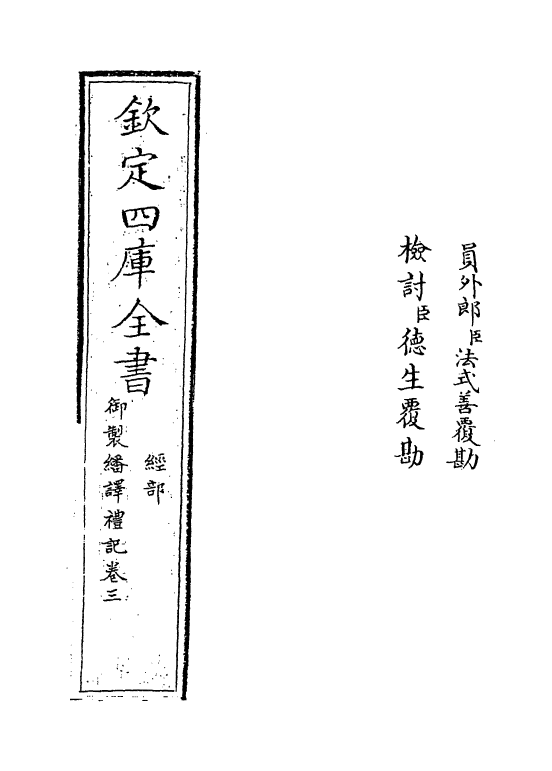 員外郎臣法式善覆勘
檢討臣德生覆勘
欽定四庫全書
經部
御製繙譯禮記卷三